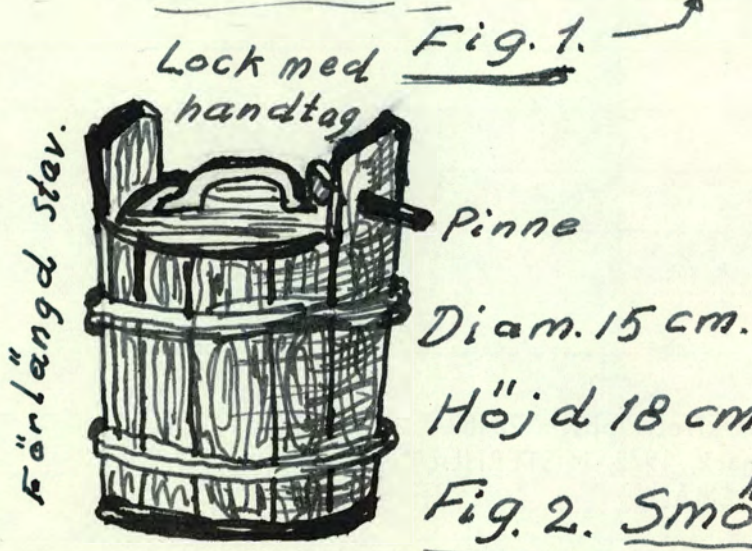 Fig. 1.
Lock med
handtag
Förlängd stav.
Pinne
Diam. 15 cm.
Höjd 18 cm
Fig. 2.